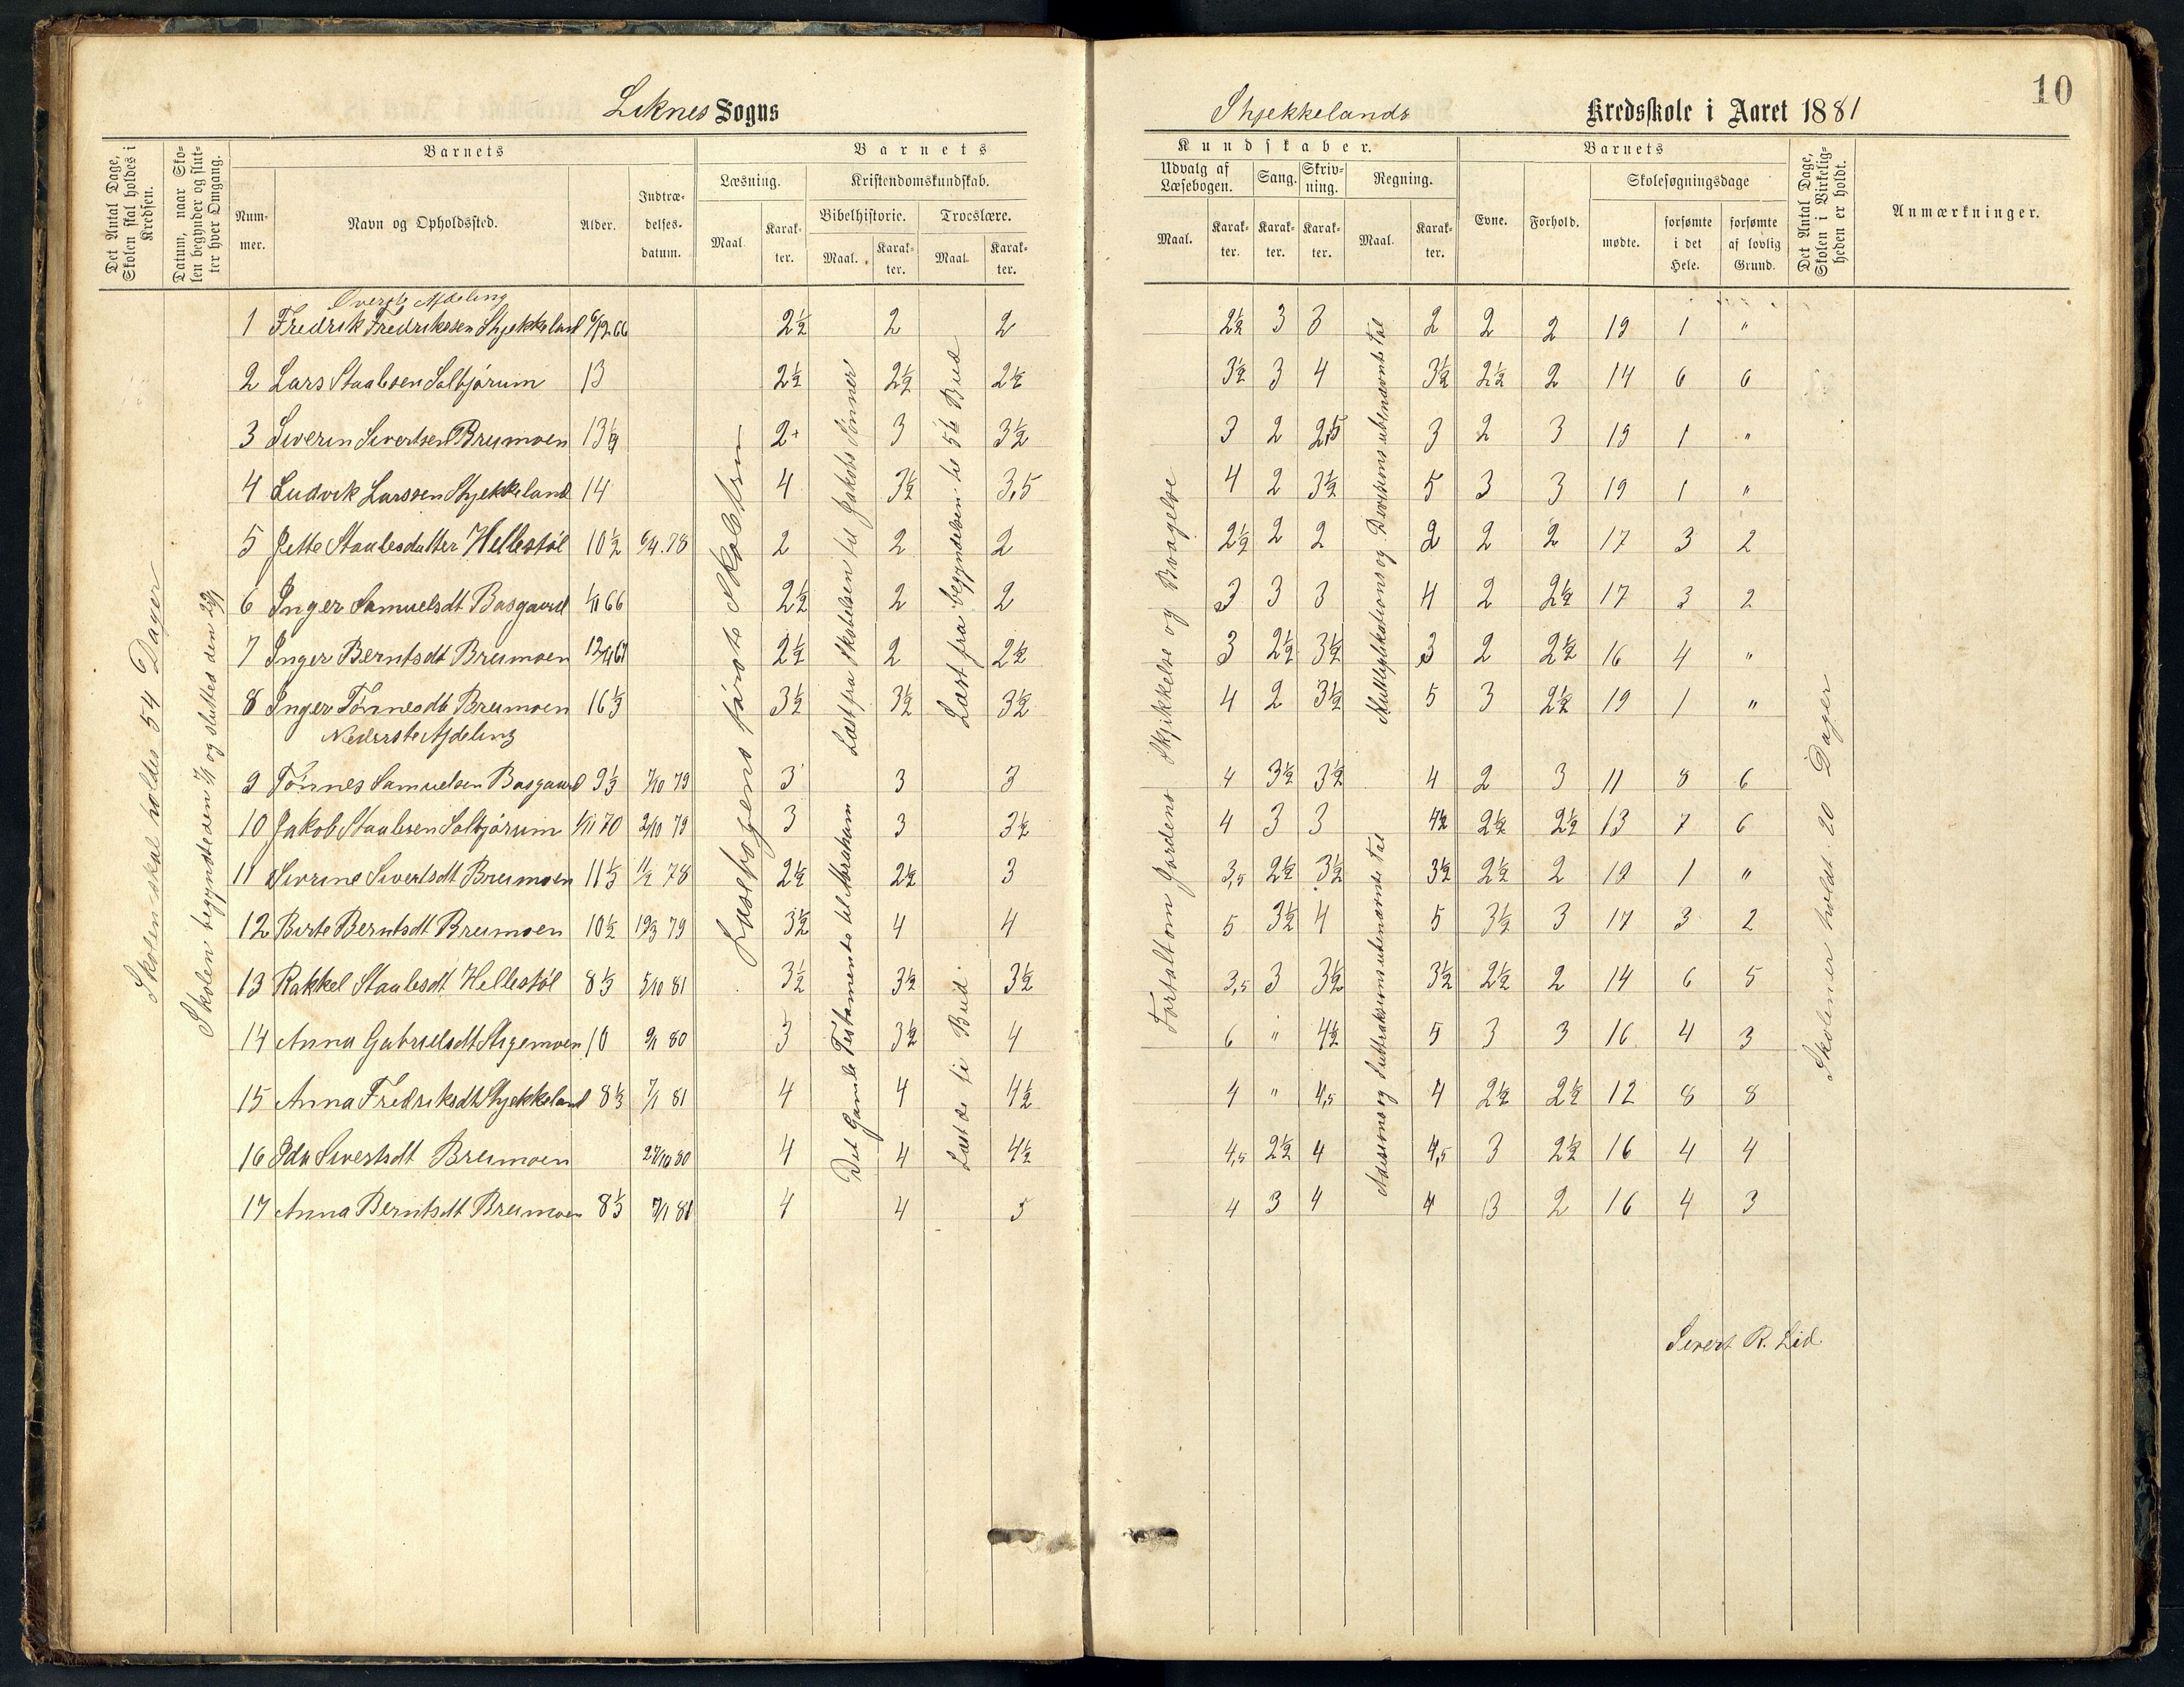 10
Liknes Sogns
Det Antal Dage, Skolen skal holdes i Kredsen.
Datum, naar Skolen begynder og slutter hver Omgang.
Barnets
Nummer.
Navn og Opholdssted.
Alder.
Indtrædelses-datum.
Barnets
Læsning.
Maal.
Karakter.
Kristendomskundskab.
Bibelhistorie.
Maal.
Karakter.
Troeslære.
Maal
Karakter.
Skolen skal holdes 54 Dager
Skolen begyndte den 7/1 og sluttes den 29/1
Læsebogens første Skoletrin
Læst fra Skabelsen til Jakobs Sønner
Læst fra begyndelsen til 5te Bud
Det Gamle Testamente til Abraham
Læst de ti Bud.
Øverste Afdeling
1 Fredrik Fredriksen Skjekkeland 6/12 66 2½ 2 2
2 Lars Staalesen Salbjørum 13 2½ 2½ 2½
3 Siverin Sivertsen Breimoen 13 2+ 3 3½
4 Ludvik Larssen Skjekkeland 14 4 3½ 3,5
5 Jette Staalesdatter Hellestøl 10½ 78 2 2 2
6 Inger Samuelsdt Basgaard 66 2½ 2 2
7 Inger Berntsdt Breimoen 2½ 2 2½
8 Inger Tønnesdt Breimoen 16⅓ 3½ 3½ 3½
Nederste Afdeling
9 Tønnes Samuelsen Basgaard 9⅓ 7/10 79 3 3 3
10 Jakob Staalesen Salbjørum 1/11 70 2/10 79 3 3 3½
11 Sivrine Sivertsdt Breimoen 11⅓ 78 2½ 2½ 3
12 Birte Berntsdt Breimoen 10½ 79 3½ 4 4
13 Rakkel Staalesdt Hellestøl 8⅓ 5/10 81 3½ 3½ 3½
14 Anna Gabrielsdt Stigemoen 10 9/1 80 3 3½ 4
15 Anna Fredriksdt Skjekkeland 8⅓ 7/1 81 4 4 4½
16 Ida Sivertsdt Breimoen 27/10 80 4 4 4½
17 Anna Berntsdt Breimoen 8⅓ 7/1 81 4 4 5
Skjekkelands Kredsskole i Aaret 1881
Kundskaber.
Udvalg af Læsebogen.
Maal.
Karakter.
Sang.
Karakter.
Skrivning.
Karakter.
Regning.
Maal.
Karakter.
Barnets
Evne.
Forhold.
Skolesøgningsdage
mødte.
forsømte i det Hele.
forsømte af lovlig Grund.
Det Antal Dage, Skolen i Virkeligheden er holdt.
Anmærkninger.
Fortalt om Jordens Skjikkelse og Bevægelse
Multiplikations og Divisions ubenævnte tal
Adisions og Suttraksions ubenævnte tal
Skolen er holdt 20 Dager
2½ 3 3 2 2 2 19 1 "
3½ 3 4 3½ 2½ 2 14 6 6
3 2 2,5 3 2 3 19 1 "
4 2 3½ 5 3 3 19 1 "
2½ 2 2 2 2 2 17 3 2
3 3 3 4 2 2½ 17 3 2
3 2½ 3½ 3 2 2½ 16 4 "
4 2 3½ 5 3 2½ 19 1 "
4 3½ 3½ 4 2 3 11 8 6
4 3 3 4½ 2½ 2½ 13 7 6
3,5 2½ 3½ 3½ 2½ 2 19 1 "
5 3½ 4 5 3½ 3 17 3 2
3,5 3 3½ 3½ 2½ 2 14 6 5
6 " 4½ 5 3 3 16 4 3
4 " 4,5 4 2½ 2½ 12 8 8
4,5 2½ 4 4,5 3 2½ 16 4 4
4 3 4 4 3 2 16 4 3
Sivert R. Lid.